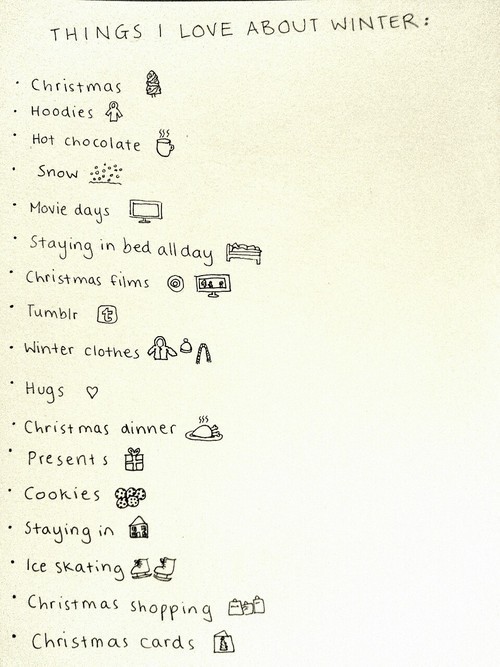 THINGS I LOVE ABOUT WINTER:
· Christmas
· Hoodies
· Hot chocolate
· Snow
· Movie days
· Staying in bed all day
· Christmas films
· Tumblr t
· Winter clothes
· Hugs
· Christmas dinner
· Presents
· Cookies
· Staying in
· Ice skating
· Christmas shopping
· Christmas cards